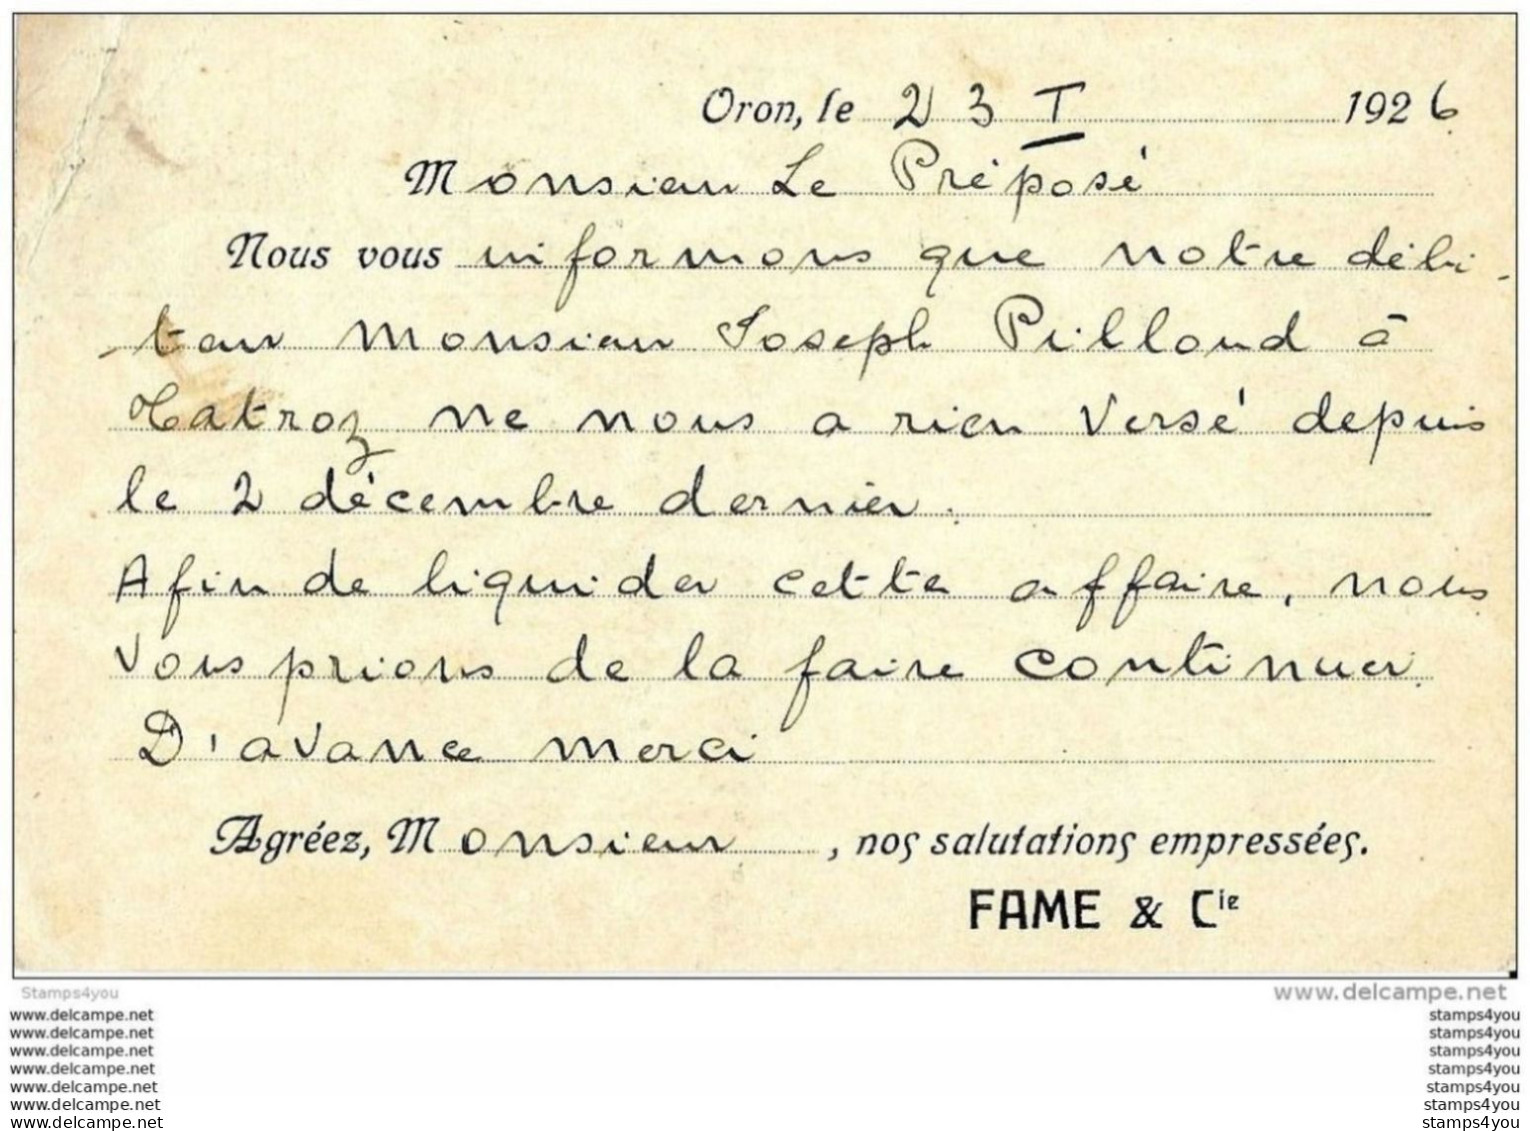 Oron, le 23 I 1926
Monsieur Le Préposé
Nous vous informons que notre débi-
teur Monsieur Joseph Pilloud à
Tatroz ne nous a rien versé depuis
le 2 décembre dernier.
Afin de liquider cette affaire, nous
vous prions de la faire continuer.
D'avance merci
Agréez, Monsieur, nos salutations empressées.
FAME & Cie
Stamps4you www.delcampe.net
www.delcampe.net stamps4you
www.delcampe.net stamps4you
www.delcampe.net stamps4you
www.delcampe.net stamps4you
www.delcampe.net stamps4you
www.delcampe.net stamps4you
www.delcampe.net stamps4you